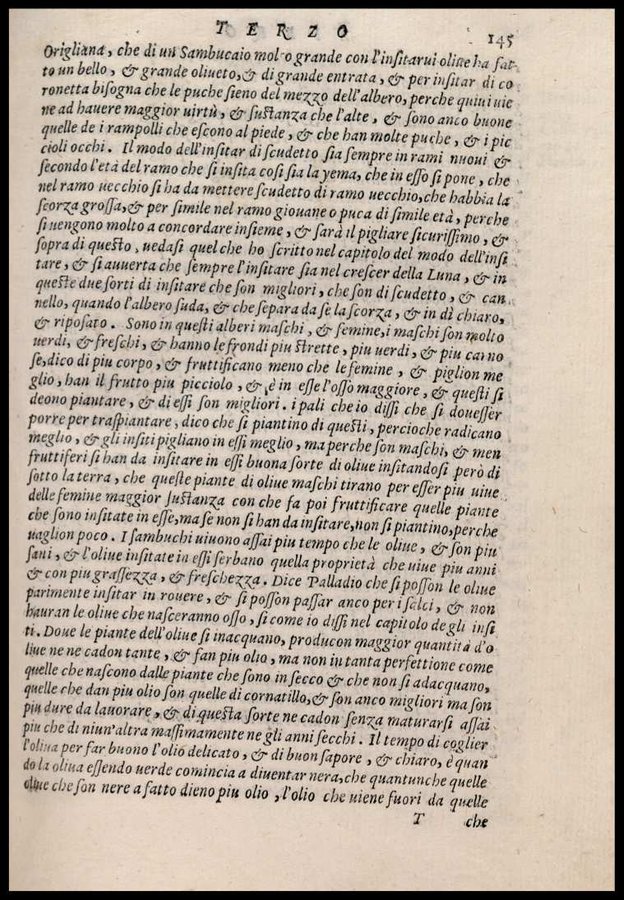 TERZO 145
Origliana, che di un Sambucaio molto grande con l'insitarui oliue ha fat-
to un bello, & grande oliueto, & di grande entrata, & per insitar di co
ronetta bisogna che le puche sieno del mezzo dell'albero, perche quiui uie
ne ad hauere maggior uirtù, & sustanza che l'alte, & sono anco buone
quelle de i rampolli che escono al piede, & che han molte puche, & i pic
cioli occhi. Il modo dell'insitar di scudetto sia sempre in rami nuoui &
secondo l'età del ramo che si insita così sia la yema, che in esso si pone, che
nel ramo uecchio si ha da mettere scudetto di ramo uecchio, che habbia la
scorza grossa, & per simile nel ramo giouane o puca di simile età, perche
si uengono molto a concordare insieme, & sarà il pigliare sicurissimo, &
sopra di questo, uedasi quel che ho scritto nel capitolo del modo dell'insi
tare, & si auuerta che sempre l'insitare sia nel crescer della Luna, & in
queste due sorti di insitare che son migliori, che son di scudetto, & can
nello, quando l'albero suda, & che separa da se la scorza, & in dì chiaro,
& riposato. Sono in questi alberi maschi, & femine, i maschi son molto
uerdi, & freschi, & hanno le frondi piu strette, piu uerdi, & piu carno
se, dico di piu corpo, & fruttificano meno che le femine, & piglion me
glio, han il frutto piu picciolo, & è in esse l'osso maggiore, & questi si
deono piantare, & di essi son migliori. i pali che io dissi che si douesser
porre per traspiantare, dico che si piantino di questi, percioche radicano
meglio, & gli insiti pigliano in essi meglio, ma perche son maschi, & men
fruttiferi si han da insitare in essi buona sorte di oliue insitandosi però di
sotto la terra, che queste piante di oliue maschi tirano per esser piu uiue
delle femine maggior sustanza con che fa poi fruttificare quelle piante
che sono insitate in esse, ma se non si han da insitare, non si piantino, perche
uaglion poco. I sambuchi uiuono assai piu tempo che le oliue, & son piu
sani, & l'oliue insitate in essi serbano quella proprietà che uiue piu anni
& con piu grassezza, & freschezza. Dice Palladio che si posson le oliue
parimente insitar in rouere, & si posson passar anco per i salci, & non
hauran le oliue che nasceranno osso, si come io dissi nel capitolo de gli insi
ti. Doue le piante dell'oliue si inacquano, producon maggior quantità d'o
liue ne ne cadon tante, & fan piu olio, ma non in tanta perfettione come
quelle che nascono dalle piante che sono in secco & che non si adacquano,
quelle che dan piu olio son quelle di cornatillo, & son anco migliori ma son
piu dure da lauorare, & di questa sorte ne cadon senza maturarsi assai
piu che di niun'altra massimamente ne gli anni secchi. Il tempo di coglier
l'oliua per far buono l'olio delicato, & di buon sapore, & chiaro, è quan
do la oliua essendo uerde comincia a diuentar nera, che quantunche quelle
oliue che son nere a fatto dieno piu olio, l'olio che uiene fuori da quelle
T che